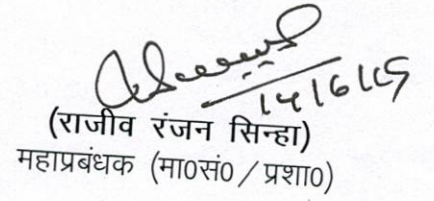 14/6/15
(राजीव रंजन सिन्हा)
महाप्रबंधक (मा०सं०/प्रशा०)